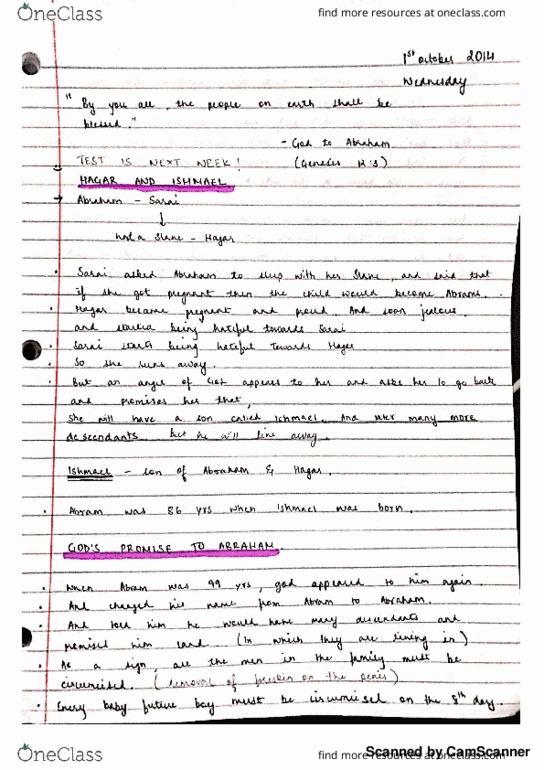 OneClass
find more resources at oneclass.com
1st october 2014
Wednesday
"By you all, the people on earth shall be
blessed."
- God to Abraham
(Genesis 12:3)
TEST IS NEXT WEEK!
HAGAR AND ISHMAEL
→ Abraham - Sarai
↓
had a slave - Hagar
• Sarai asked Abraham to sleep with her slave, and said that
if she got pregnant then the child would become Abrams.
• Hagar became pregnant and proud. And soon jealous.
and started being hateful towards Sarai
• Sarai starts being hateful towards Hagar
• So she runs away.
• But an angel of God appears to her and asks her to go back
and promises her that,
She will have a son called Ishmael. And later many more
descendants but he will live away.
Ishmael - son of Abraham & Hagar.
• Abram was 86 yrs when Ishmael was born.
GOD'S PROMISE TO ABRAHAM.
• When Abram was 99 yrs, god appeared to him again.
• And changed his name from Abram to Abraham.
• And told him he would have many descendants and
promised him land (In which they are living in)
• As a sign, all the men in the family must be
circumcised. (removal of foreskin on the penis)
• Every baby future boy must be circumcised on the 8th day.
OneClass
find more resources at oneclass.com
Scanned by CamScanner